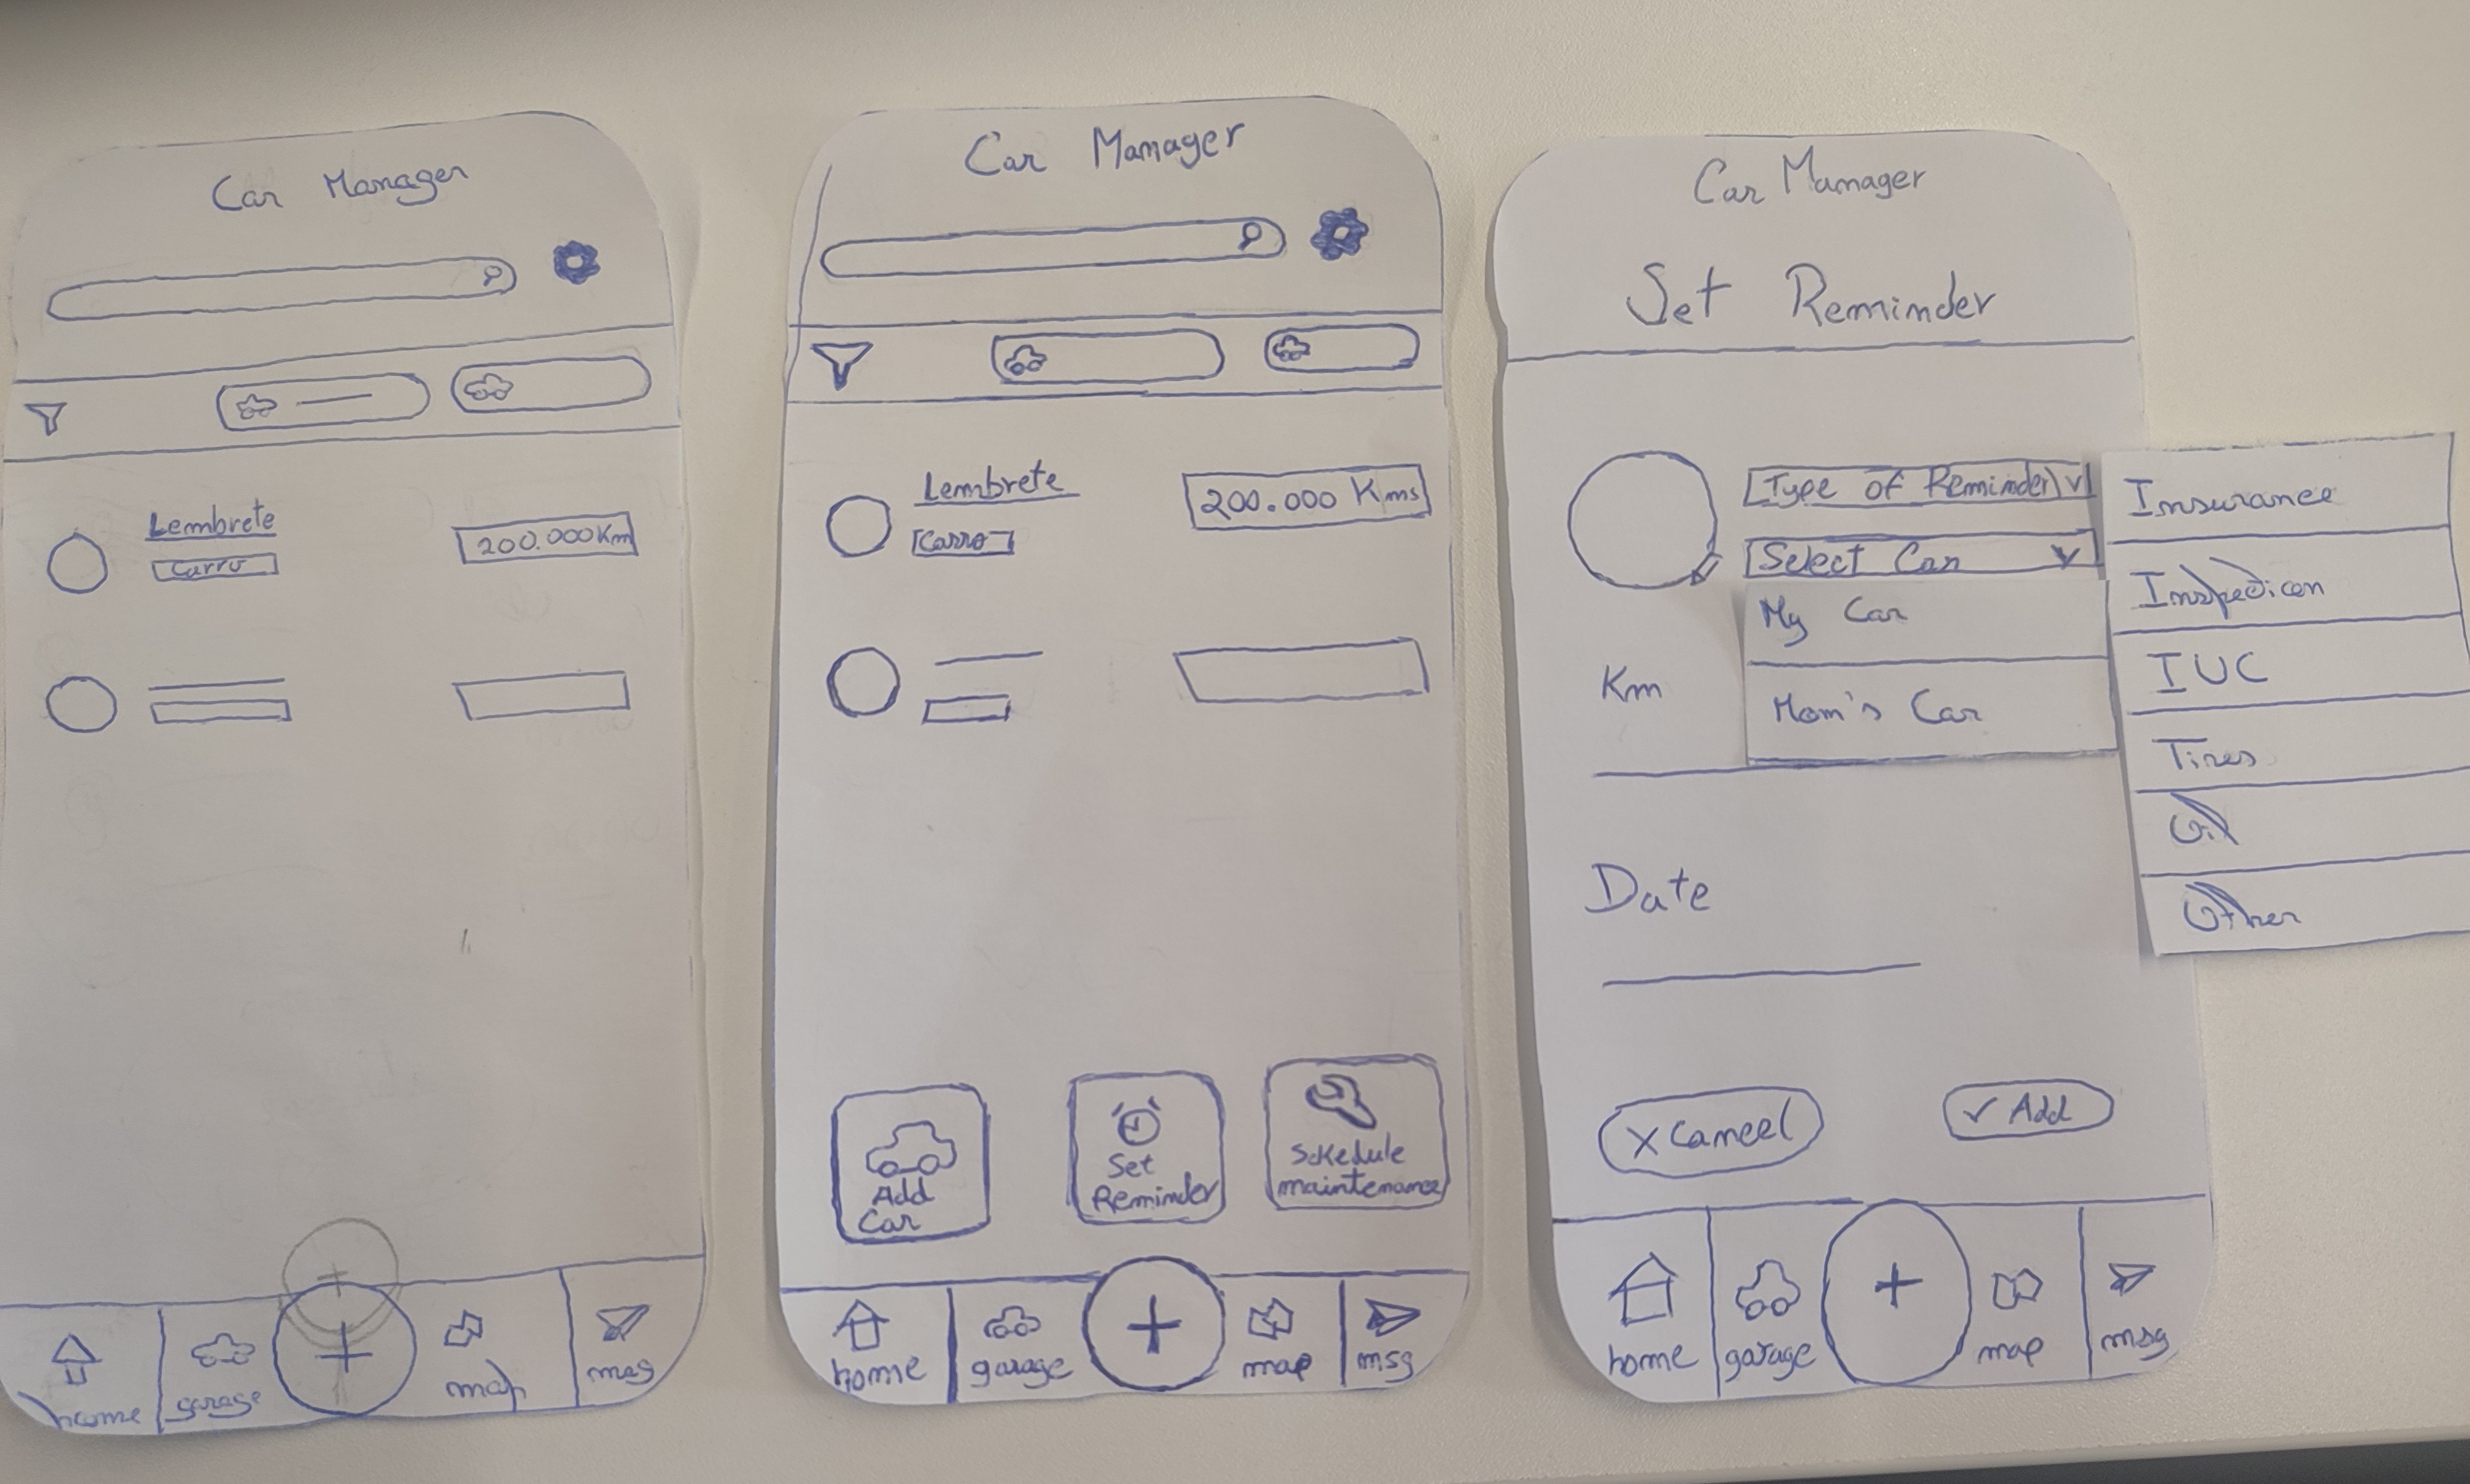 Car Manager
Lembrete
Carro
200.000 Km
home
garage
map
msg
Car Manager
Lembrete
Carro
200.000 Kms
Add
Car
Set
Reminder
Schedule
maintenance
home
garage
map
msg
Car Manager
Set Reminder
Type of Reminder
Select Car
My Car
Mom's Car
Insurance
Inspection
IUC
Tires
Oil
Other
Km
Date
X Cancel
✓ Add
home
garage
map
msg